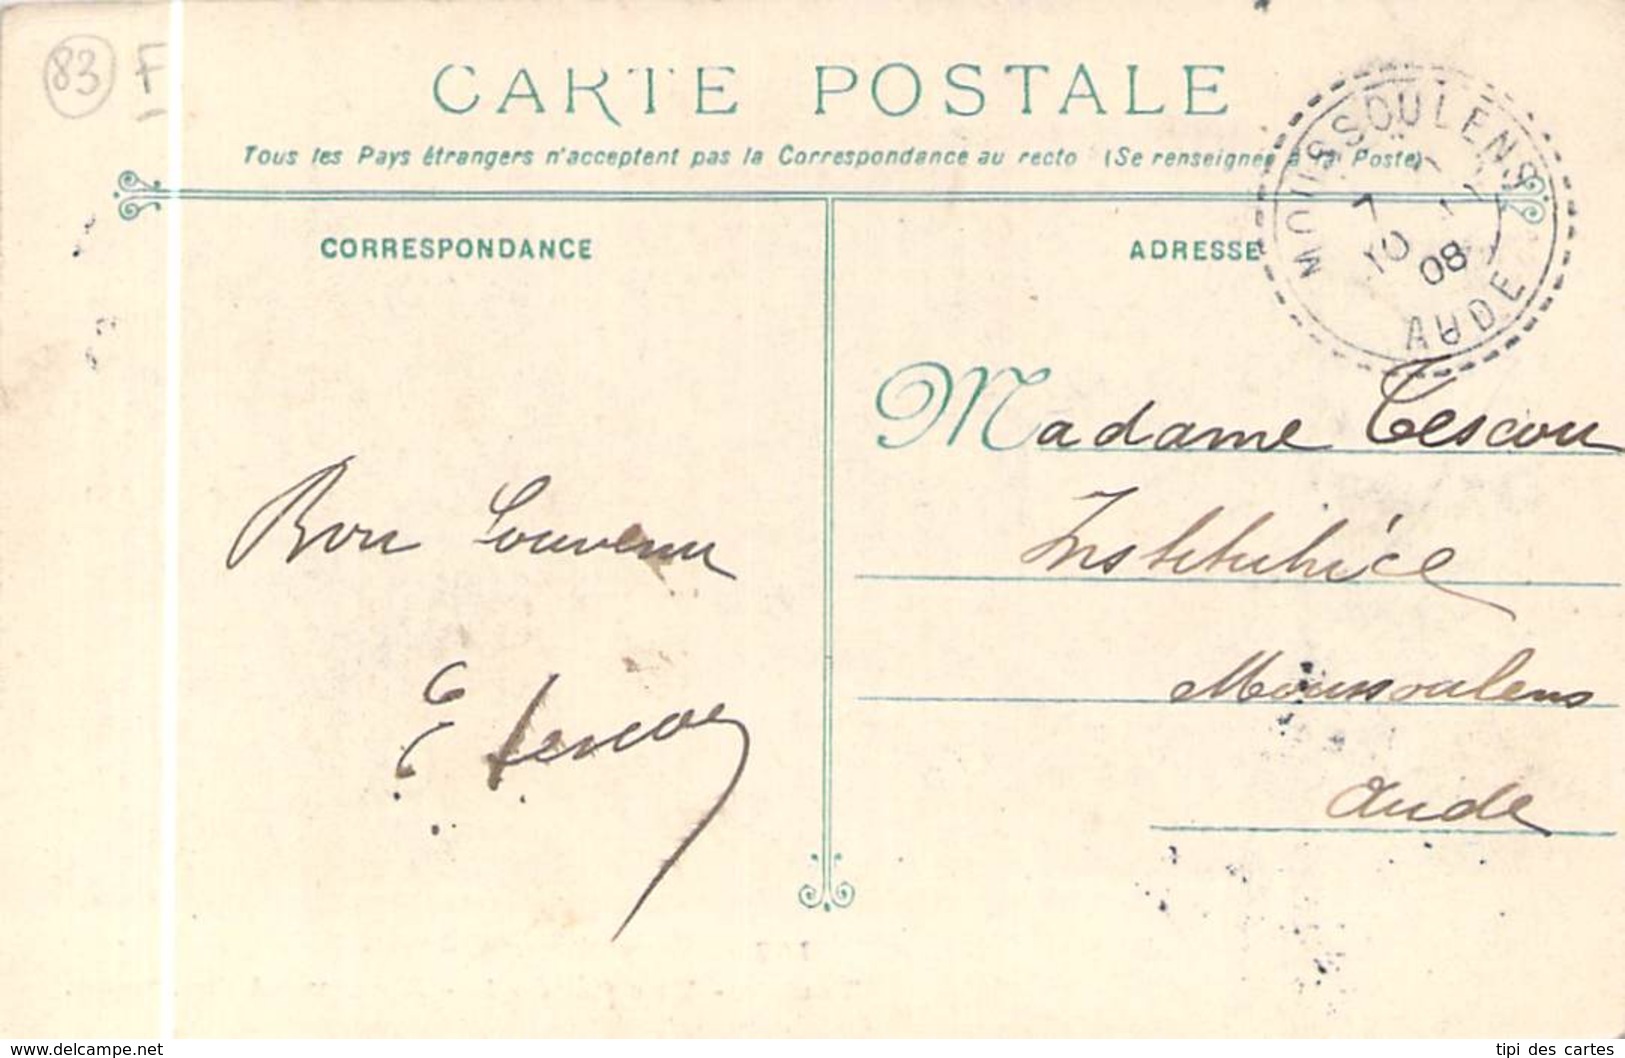 83 F
CARTE POSTALE
Tous les Pays étrangers n'acceptent pas la Correspondance au recto (Se renseigner à la Poste)
MOUSSOULENS
7
10
08
AUDE
CORRESPONDANCE
ADRESSE
Madame Tescou
Institutrice
Moussoulens
Aude
Bon Souvenir
E Tescou
www.delcampe.net
tipi des cartes